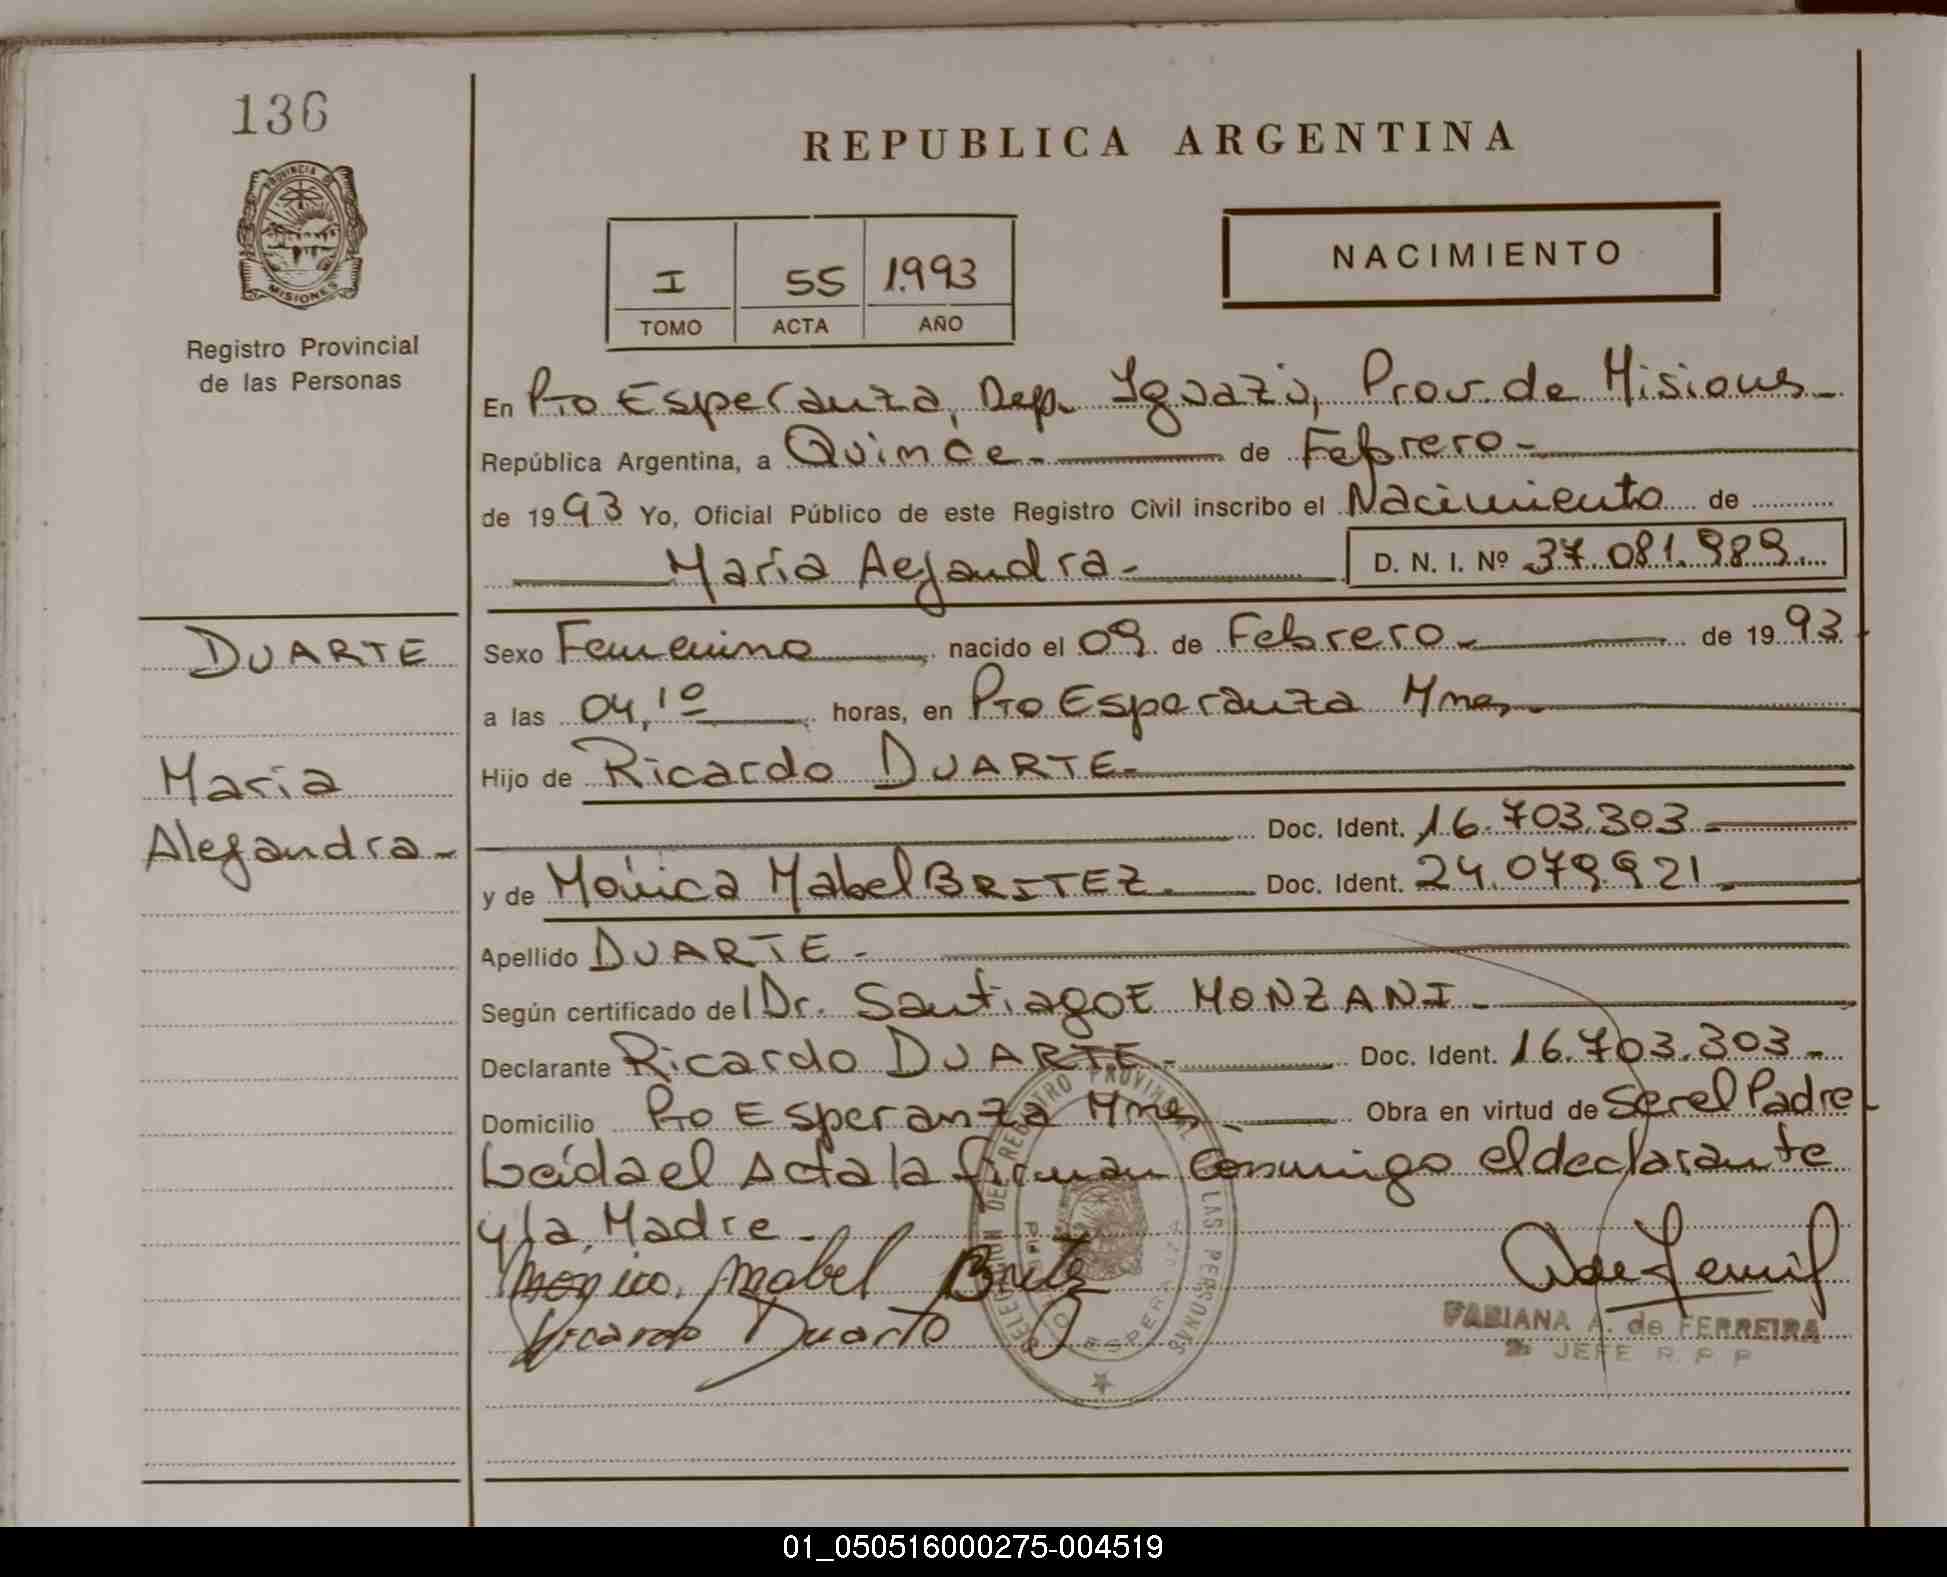 136
PROVINCIA DE
MISIONES
Registro Provincial
de las Personas
REPUBLICA ARGENTINA
I 55 1.993
TOMO ACTA AÑO
NACIMIENTO
En Pto Esperanza, Dep. Iguazú, Prov. de Misiones -
República Argentina, a Quince - de Febrero -
de 1993 Yo, Oficial Público de este Registro Civil inscribo el Nacimiento de
María Aejandra - D. N. I. Nº 37.081.989
DUARTE
María
Alejandra -
Sexo Femenino nacido el 09 de Febrero - de 1993
a las 04,10 horas, en Pto Esperanza Mnes -
Hijo de Ricardo DUARTE -
Doc. Ident. 16.703.303 -
y de Mónica Mabel BRITEZ - Doc. Ident. 24.079.921 -
Apellido DUARTE -
Según certificado del Dr. Santiago E MONZANI -
Declarante Ricardo DUARTE - Doc. Ident. 16.703.303 -
Domicilio Pto Esperanza Mnes - Obra en virtud de Ser el Padre
Leída el Acta la firman Conmigo el declarante
y la Madre -
Monica Mabel Britez
Ricardo Duarte
DELEGACION DEL REGISTRO PROVINCIAL DE LAS PERSONAS
PTO ESPERANZA
FABIANA A. de FERREIRA
JEFE R. P. P.
01_050516000275-004519